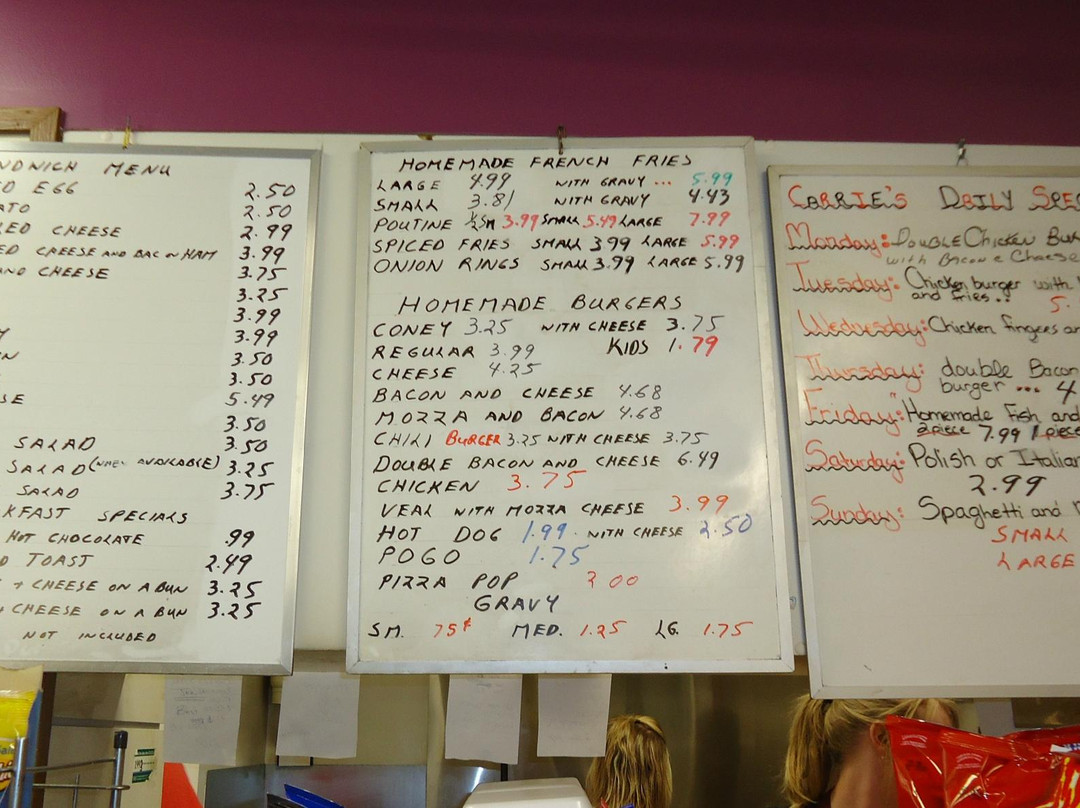 MENU
EGG 2.50
2.50
CHEESE 2.99
CHEESE AND BAC ON HAM 3.99
AND CHEESE 3.75
3.25
3.99
3.99
3.50
3.50
5.49
3.50
SALAD 3.50
SALAD (WHEN AVAILABLE) 3.25
SALAD 3.75
KFAST SPECIALS
HOT CHOCOLATE .99
TOAST 2.49
+ CHEESE ON A BUN 3.25
CHEESE ON A BUN 3.25
NOT INCLUDED
HOMEMADE FRENCH FRIES
LARGE 4.99 WITH GRAVY ... 5.99
SMALL 3.81 WITH GRAVY 4.43
POUTINE 3.99 SMALL 5.49 LARGE 7.99
SPICED FRIES SMALL 3.99 LARGE 5.99
ONION RINGS SMALL 3.99 LARGE 5.99
HOMEMADE BURGERS
CONEY 3.25 WITH CHEESE 3.75
REGULAR 3.99 KIDS 1.79
CHEESE 4.25
BACON AND CHEESE 4.68
MOZZA AND BACON 4.68
CHILI BURGER 3.25 WITH CHEESE 3.75
DOUBLE BACON AND CHEESE 6.49
CHICKEN 3.75
VEAL WITH MOZZA CHEESE 3.99
HOT DOG 1.99 WITH CHEESE 2.50
POGO 1.75
PIZZA POP 2 00
GRAVY
SM. 75¢ MED. 1.25 LG. 1.75
CARRIE'S DAILY SPEC
Monday: Double Chicken Bur
with Bacon & Cheese
Tuesday: Chicken burger with
and fries.. 5.
Wednesday: Chicken fingers an
Thursday: double Bacon
burger ... 4
Friday: Homemade Fish and
2 piece 7.99 1 piece
Saturday: Polish or Italian
2.99
Sunday: Spaghetti and
SMALL
LARGE